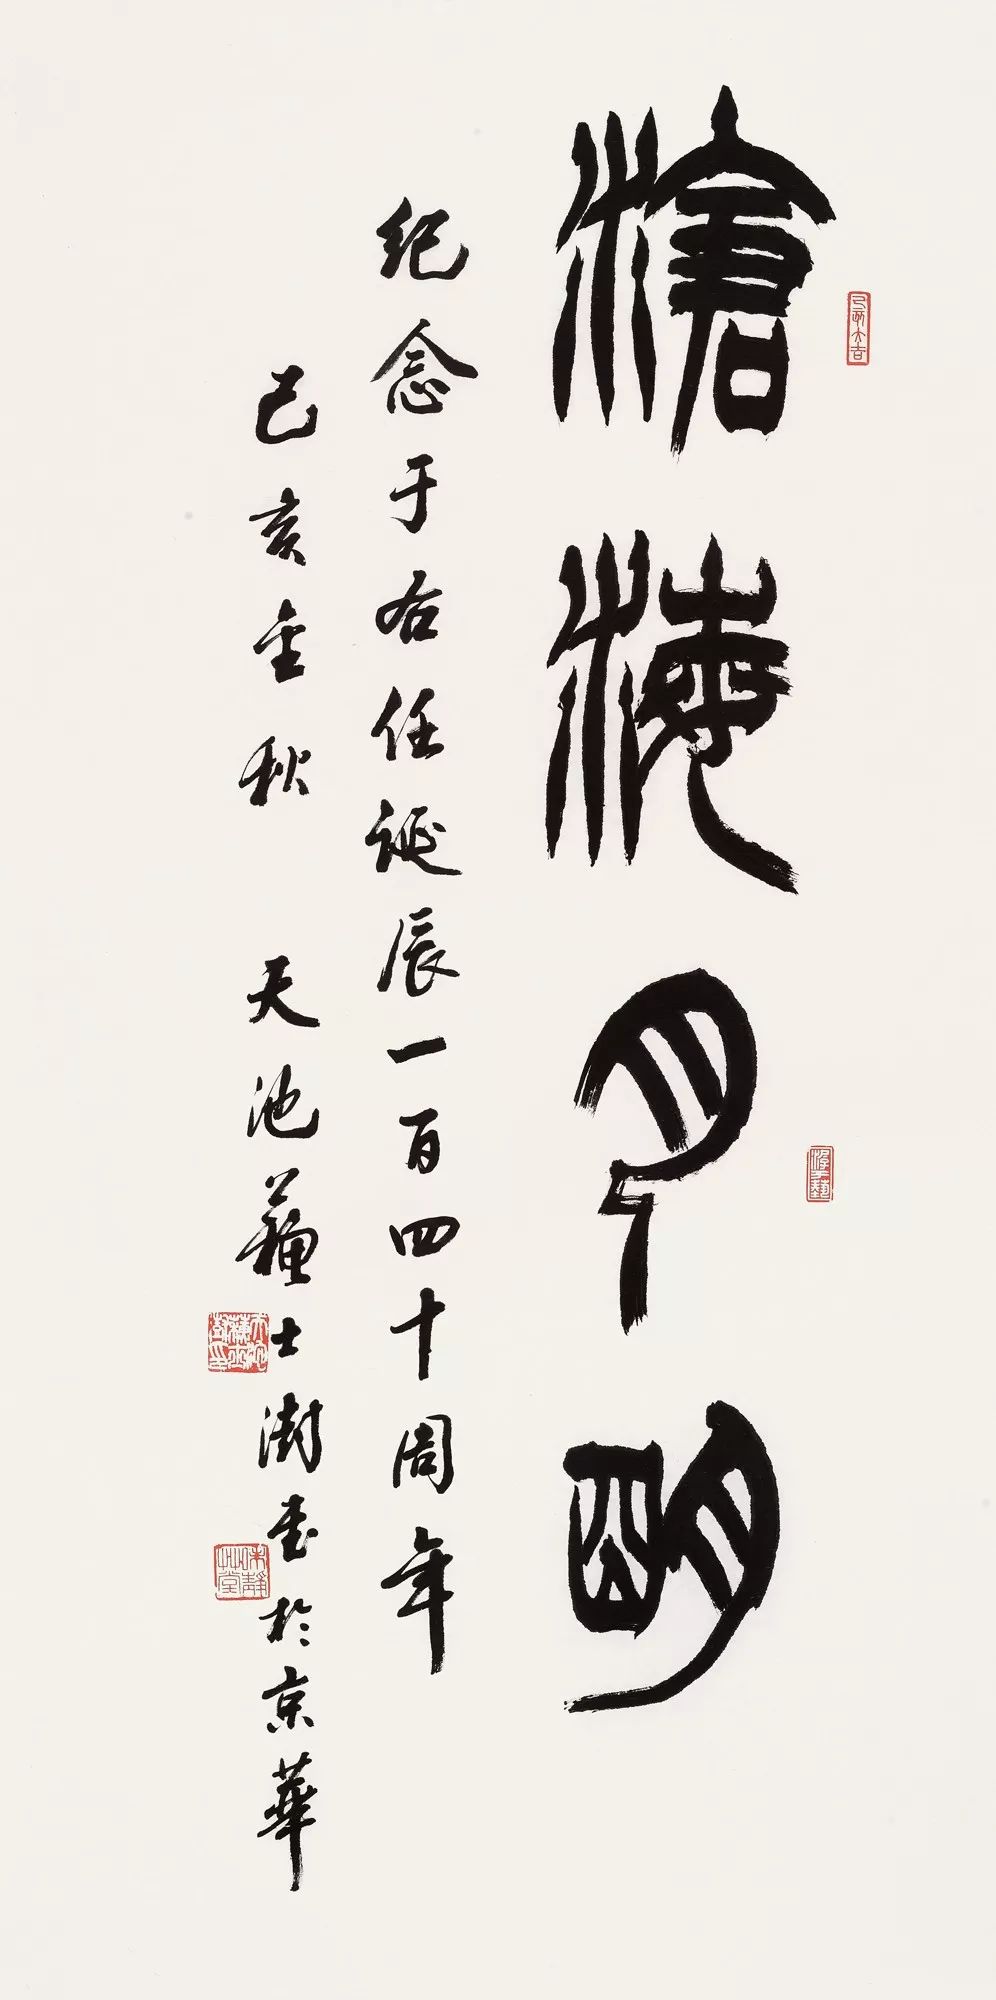 己亥大吉
滄海月明
纪念于右任诞辰一百四十周年
己亥金秋 天池蘇士澍書於京華